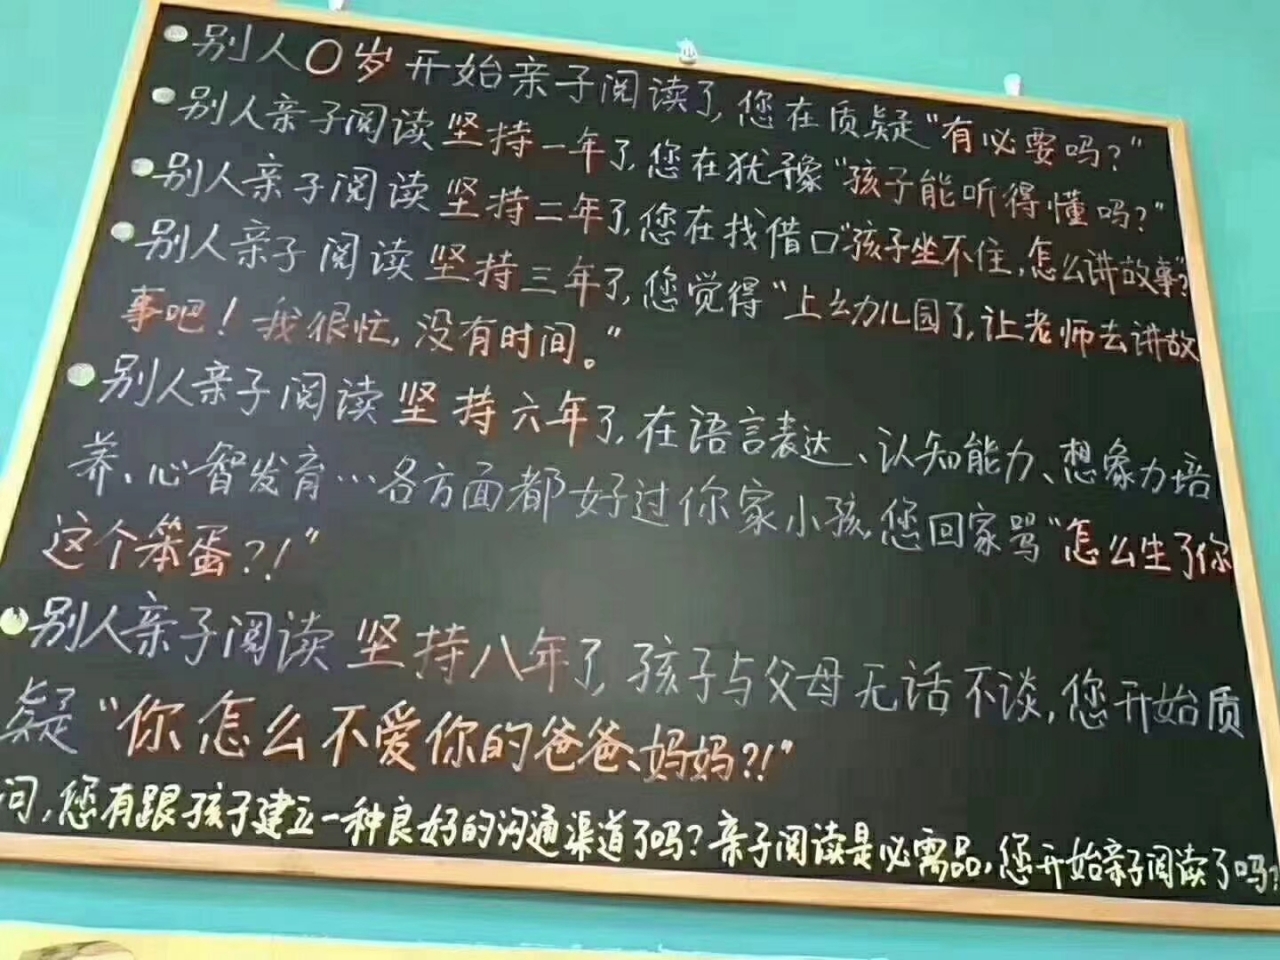 别人0岁开始亲子阅读了,您在质疑“有必要吗?”
别人亲子阅读坚持一年了,您在犹豫“孩子能听得懂吗?”
别人亲子阅读坚持二年了,您在找借口“孩子坐不住,怎么讲故事?”
别人亲子阅读坚持三年了,您觉得“上幼儿园了,让老师去讲故
事吧!我很忙,没有时间。”
别人亲子阅读坚持六年了,在语言表达、认知能力、想象力培
养、心智发育…各方面都好过你家小孩,您回家骂“怎么生了你
这个笨蛋?!”
别人亲子阅读坚持八年了,孩子与父母无话不谈,您开始质
疑“你怎么不爱你的爸爸、妈妈?!”
问,您有跟孩子建立一种良好的沟通渠道了吗?亲子阅读是必需品,您开始亲子阅读了吗?